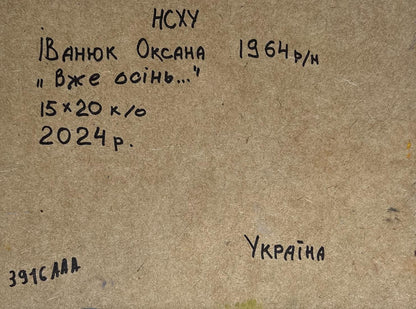 НСХУ
Іванюк Оксана 1964 р/н
„Вже осінь..."
15×20 к/о
2024 р.
Україна
3916ААА